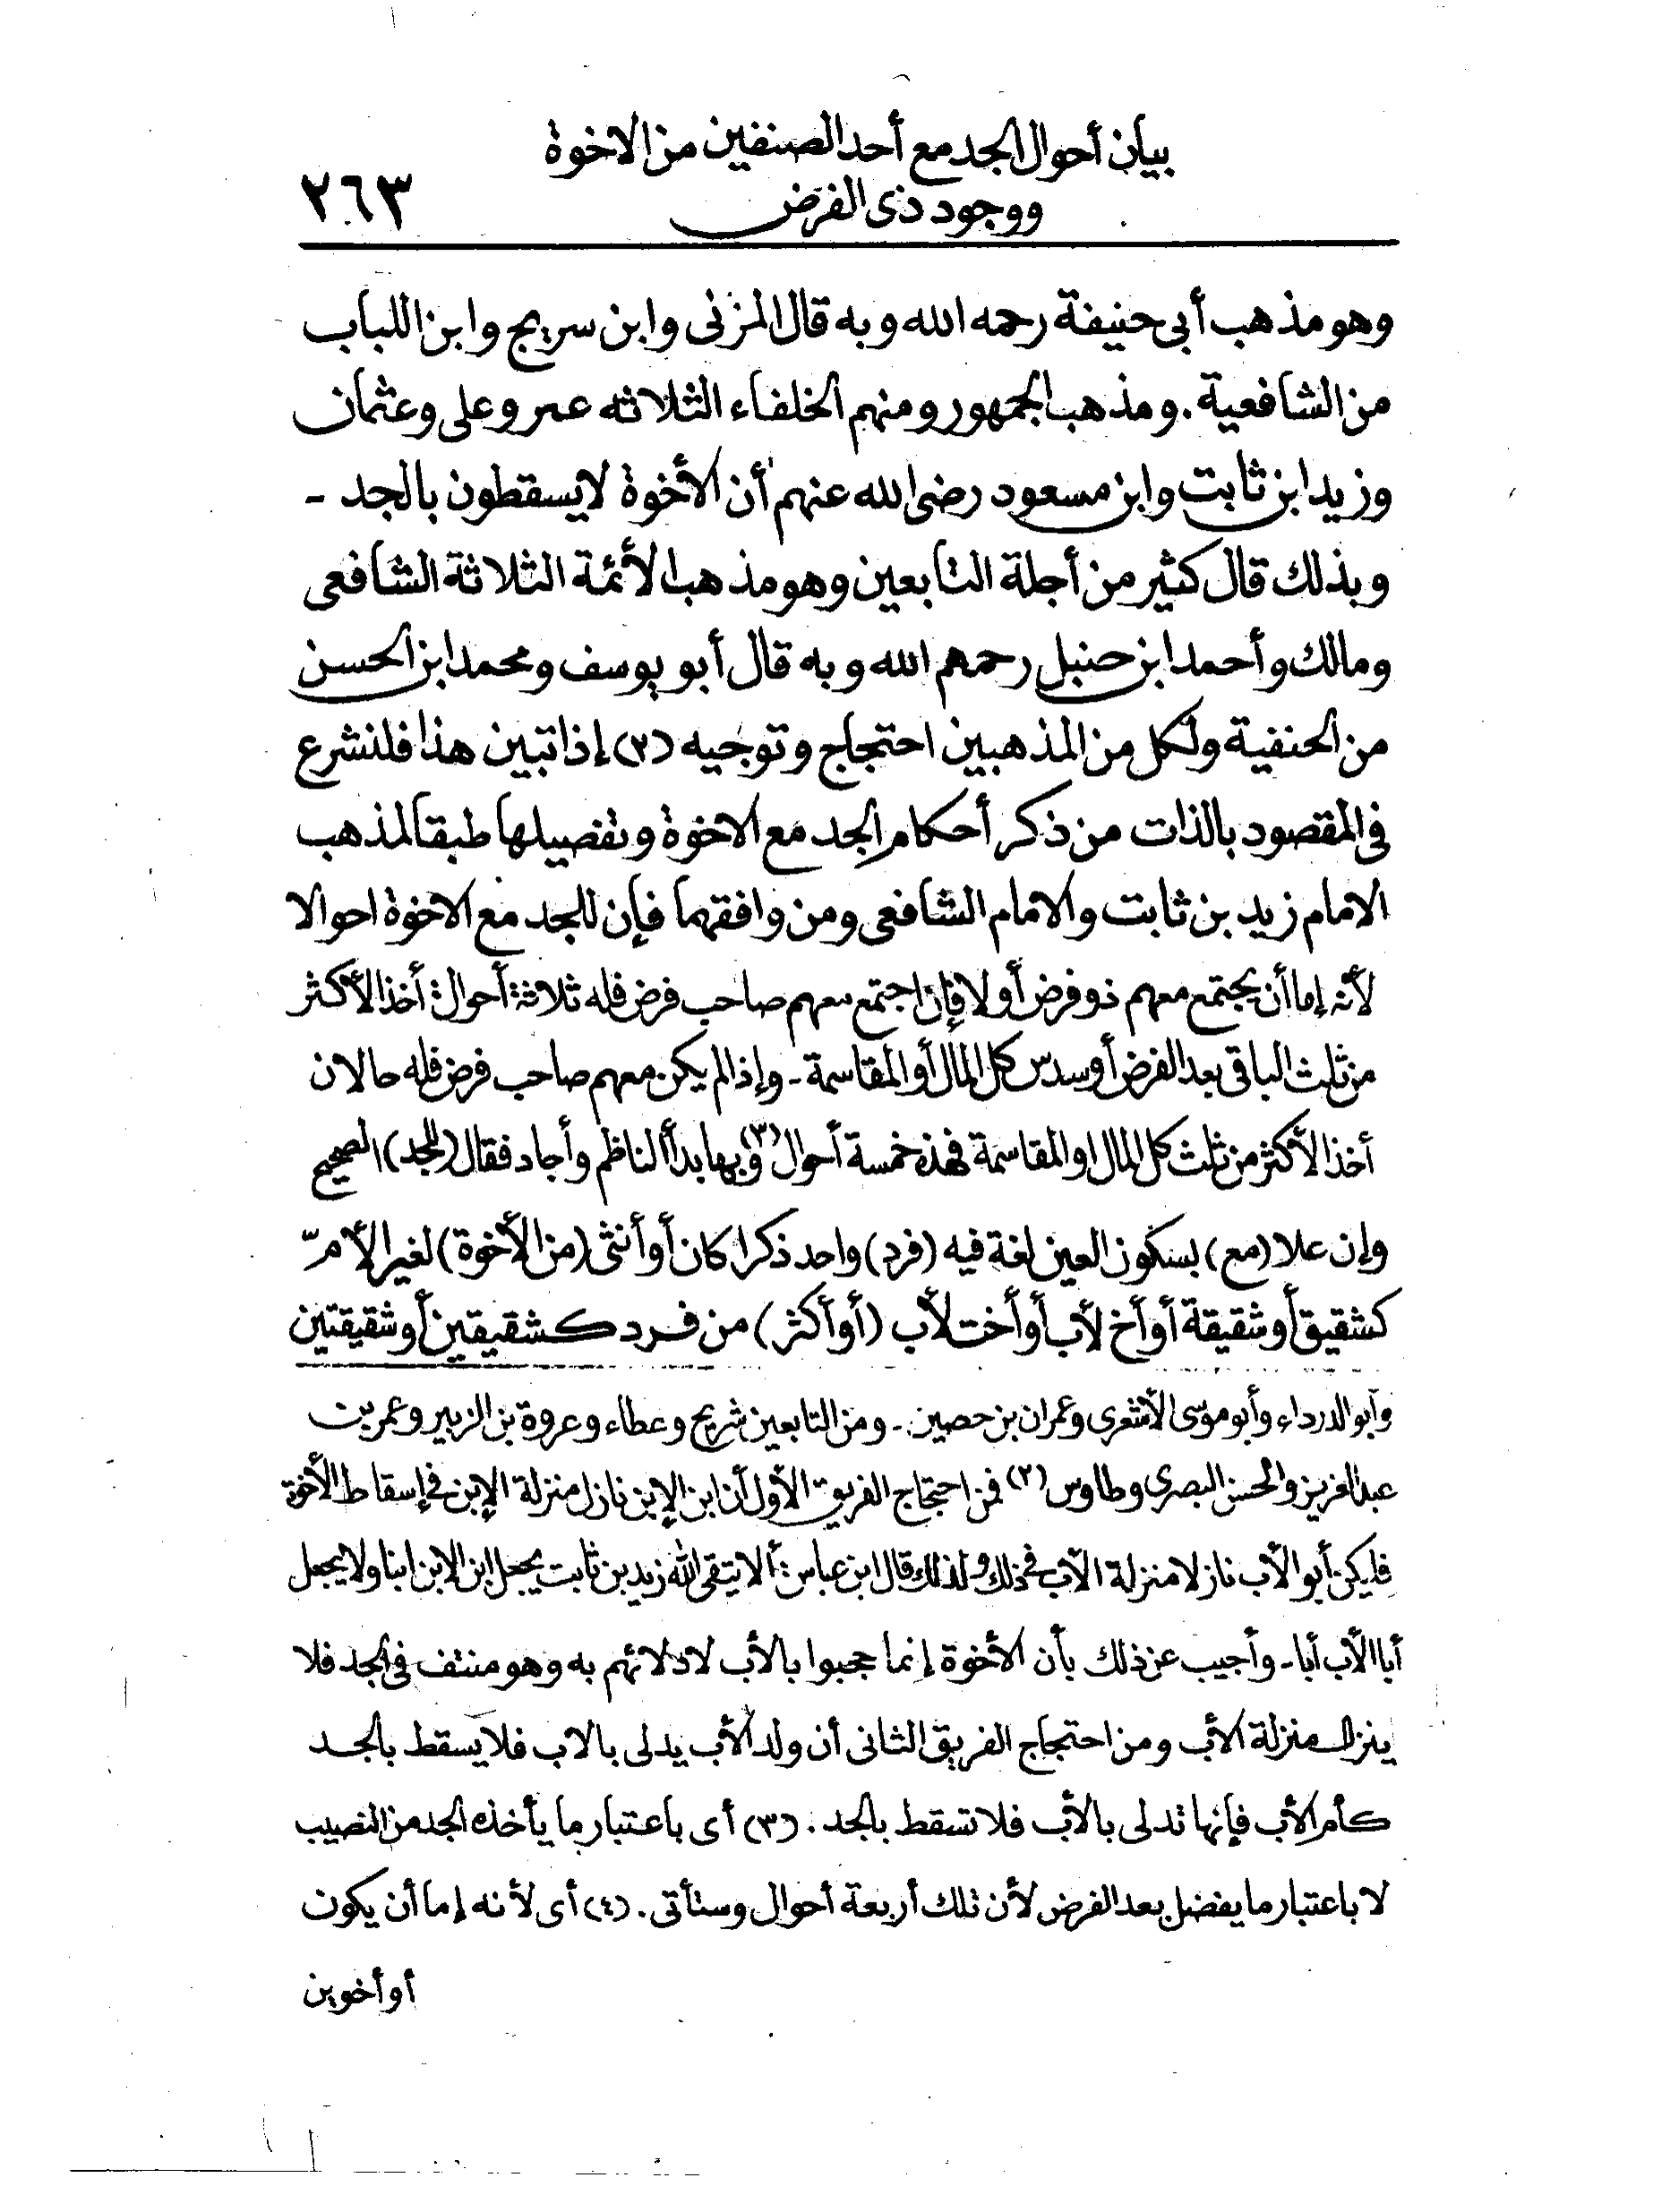 بيان أحوال الجد مع أحد الصنفين من الاخوة
ووجود ذى الفرض
٢٦٣
وهو مذهب أبى حنيفة رحمه الله وبه قال المزنى وابن سريج وابن اللباب
من الشافعية . ومذهب الجمهور ومنهم الخلفاء الثلاثه عمر وعلى وعثمان
وزيد ابن ثابت وابن مسعود رضى الله عنهم أن الأخوة لايسقطون بالجد -
وبذلك قال كثير من أجلة التابعين وهو مذهب الأئمة الثلاثة الشافعى
ومالك وأحمد ابن حنبل رحمهم الله وبه قال أبو يوسف ومحمد ابن الحسن
من الحنفية ولكل من المذهبين احتجاج وتوجيه (٢) إذا تبين هذا فلنشرع
فى المقصود بالذات من ذكر أحكام الجد مع الاخوة وتفصيلها طبقا لمذهب
الامام زيد بن ثابت والامام الشافعى ومن وافقهما فإن للجد مع الاخوة احوالا
لأنه إما أن يجتمع معهم ذو فرض أو لا فإن اجتمع معهم صاحب فرض فله ثلاثة أحوال : أخذ الأكثر
من ثلث الباقى بعد الفرض أو سدس كل المال أو المقاسمة - وإذا لم يكن معهم صاحب فرض فله حالان
أخذ الأكثر من ثلث كل المال او المقاسمة فهذه خمسة أحوال (٣) وبها بدأ الناظم وأجاد فقال (للجد) الصحيح
وإن علا (مع) بسكون العين لغة فيه (فرد) واحد ذكرا كان أو أنثى (من الأخوة) لغير الأم
كشقيق أو شقيقة أو أخ لأب أو أخت لأب (أو أكثر) من فرد كشقيقين أو شقيقتين
وأبو الدرداء وأبو موسى الأشعرى وعمران بن حصين . - ومن التابعين شريح وعطاء وعروة بن الزبير وعمر بن
عبد العزيز والحسن البصرى وطاوس (٢) فمن احتجاج الفريق الأول أن ابن الإبن نازل منزلة الإبن فى إسقاط الأخوة
فليكن أبو الأب نازلا منزلة الأب فى ذلك ولذلك قال ابن عباس : ألا يتقى الله زيد بن ثابت يجعل ابن الإبن ابنا ولا يجعل
أبا الأب أبا - وأجيب عن ذلك بأن الأخوة إنما حجبوا بالأب لادلائهم به وهو منتف فى الجد فلا
ينزل منزلة الأب ومن احتجاج الفريق الثانى أن ولد الأب يدلى بالاب فلا يسقط بالجد
كأم الأب فإنها تدلى بالأب فلا تسقط بالجد . (٣) أى باعتبار ما يأخذه الجد من النصيب
لا باعتبار ما يفضل بعد الفرض لأن تلك أربعة أحوال وستأتى . (٤) أى لأنه إما أن يكون
أو أخوين